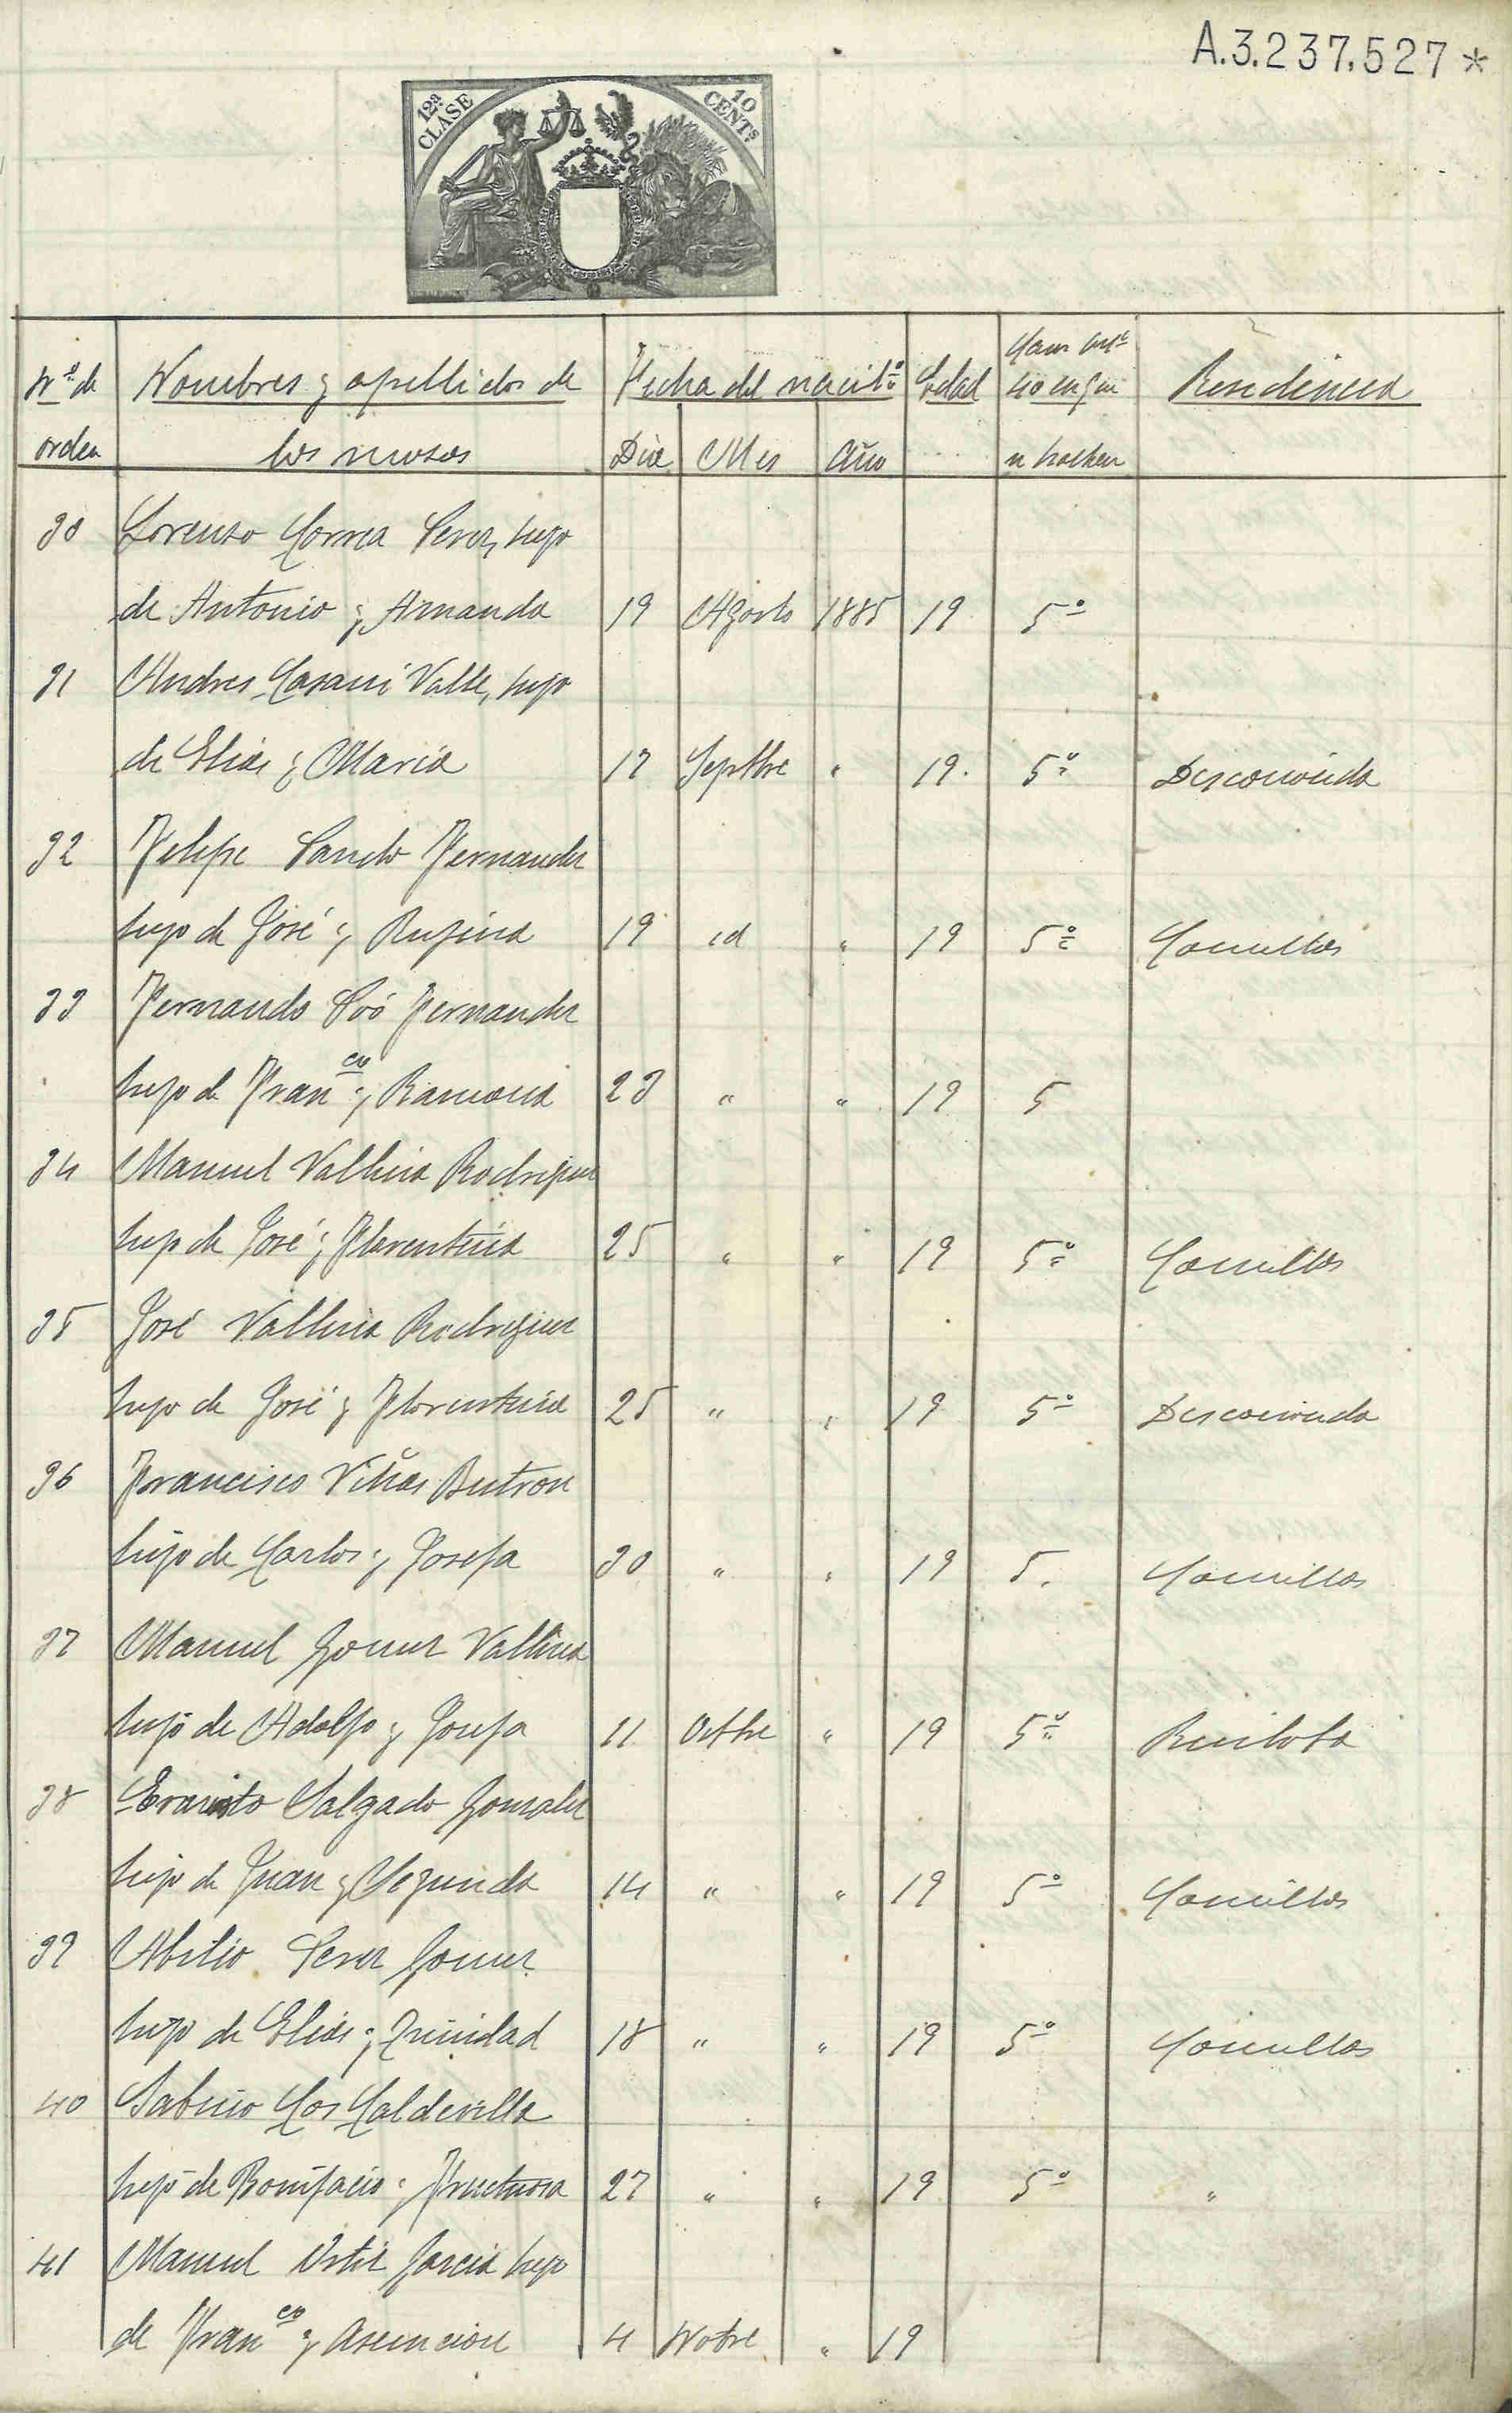 A.3.237.527*
12ª CLASE
10 CENTs
Nº de Nombres y apellidos de Fecha del nacitº Edad Residencia
orden los mosos Dia Mes Año
30 Lorenzo Correa Perez, hijo
de Antonio y Amanda 19 Agosto 1885 19 5º
31 Andres Casani Valle, hijo
de Elias y Maria 17 Septbre " 19. 5º Desconocida
32 Felipe Sancho Fernandez
hijo de José y Rufina 19 id " 19 5º Comillas
33 Fernando Poó Fernandez
hijo de Franco y Ramona 23 " " 19 5
34 Manuel Vallina Rodriguez
hijo de José y Florentina 25 " " 19 5º Comillas
35 José Vallina Rodriguez
hijo de José y Florentina 25 " " 19 5º Desconocida
36 Francisco Viñas Butron
hijo de Carlos y Josefa 30 " " 19 5. Comillas
37 Manuel Gomez Vallina
hijo de Adolfo y Josefa 11 Octbre " 19 5º Ruiloba
38 Evaristo Salgado Gonzalez
hijo de Juan y Segunda 14 " " 19 5º Comillas
39 Abilio Perez Gomez
hijo de Elias y Trinidad 18 " " 19 5º Comillas
40 Sabino Cos Caldevilla
hijo de Bonifacio y Fructuosa 27 " " 19 5º "
41 Manuel Ortiz Garcia hijo
de Franco y Asuncion 4 Nobre " 19